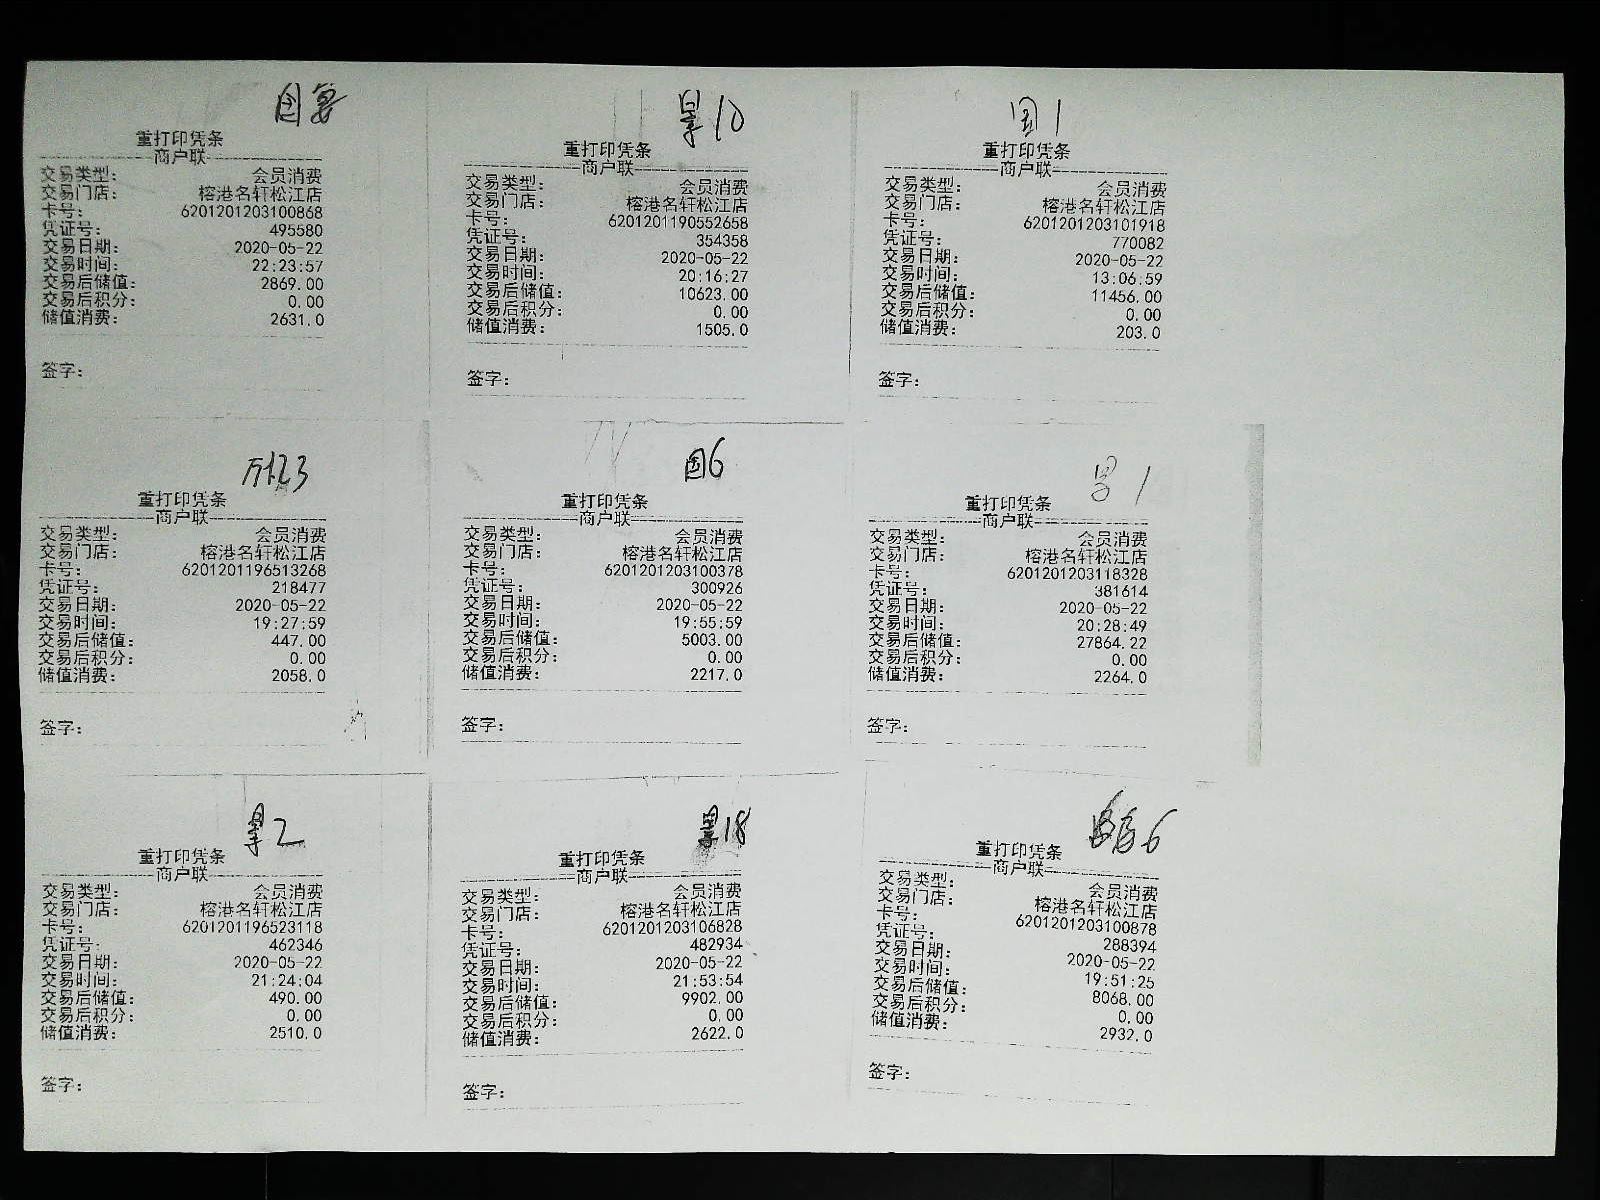 国宴
重打印凭条
商户联
交易类型： 会员消费
交易门店： 榕港名轩松江店
卡号： 6201201203100868
凭证号： 495580
交易日期： 2020-05-22
交易时间： 22:23:57
交易后储值： 2869.00
交易后积分： 0.00
储值消费： 2631.0
签字：
10
重打印凭条
商户联
交易类型： 会员消费
交易门店： 榕港名轩松江店
卡号： 6201201190552658
凭证号： 354358
交易日期： 2020-05-22
交易时间： 20:16:27
交易后储值： 10623.00
交易后积分： 0.00
储值消费： 1505.0
签字：
国1
重打印凭条
商户联
交易类型： 会员消费
交易门店： 榕港名轩松江店
卡号： 6201201203101918
凭证号： 770082
交易日期： 2020-05-22
交易时间： 13:06:59
交易后储值： 11456.00
交易后积分： 0.00
储值消费： 203.0
签字：
3
重打印凭条
商户联
交易类型： 会员消费
交易门店： 榕港名轩松江店
卡号： 6201201196513268
凭证号： 218477
交易日期： 2020-05-22
交易时间： 19:27:59
交易后储值： 447.00
交易后积分： 0.00
储值消费： 2058.0
签字：
国6
重打印凭条
商户联
交易类型： 会员消费
交易门店： 榕港名轩松江店
卡号： 6201201203100378
凭证号： 300926
交易日期： 2020-05-22
交易时间： 19:55:59
交易后储值： 5003.00
交易后积分： 0.00
储值消费： 2217.0
签字：
1
重打印凭条
商户联
交易类型： 会员消费
交易门店： 榕港名轩松江店
卡号： 6201201203118328
凭证号： 381614
交易日期： 2020-05-22
交易时间： 20:28:49
交易后储值： 27864.22
交易后积分： 0.00
储值消费： 2264.0
签字：
2
重打印凭条
商户联
交易类型： 会员消费
交易门店： 榕港名轩松江店
卡号： 6201201196523118
凭证号： 462346
交易日期： 2020-05-22
交易时间： 21:24:04
交易后储值： 490.00
交易后积分： 0.00
储值消费： 2510.0
签字：
18
重打印凭条
商户联
交易类型： 会员消费
交易门店： 榕港名轩松江店
卡号： 6201201203106828
凭证号： 482934
交易日期： 2020-05-22
交易时间： 21:53:54
交易后储值： 9902.00
交易后积分： 0.00
储值消费： 2622.0
签字：
6
重打印凭条
商户联
交易类型： 会员消费
交易门店： 榕港名轩松江店
卡号： 6201201203100878
凭证号： 288394
交易日期： 2020-05-22
交易时间： 19:51:25
交易后储值： 8068.00
交易后积分： 0.00
储值消费： 2932.0
签字：